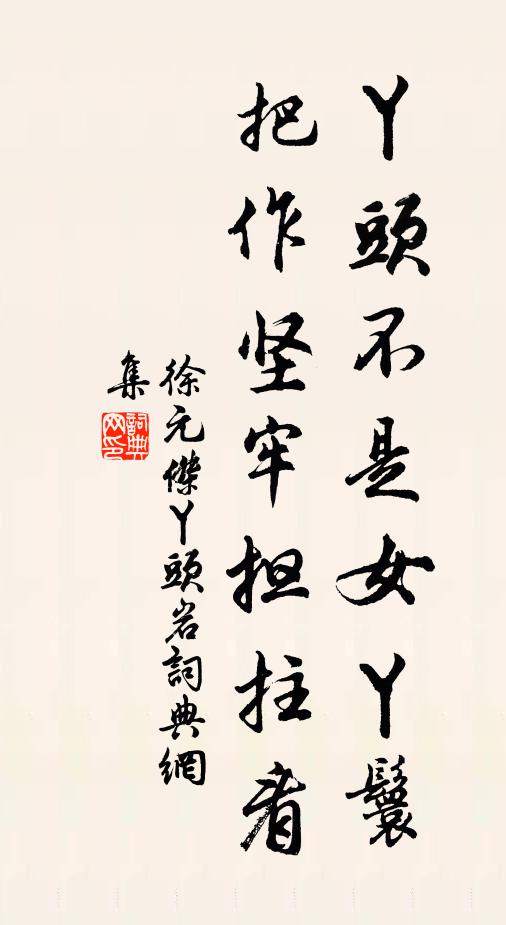 丫頭不是女丫鬟
把作坚牢担拄看
徐元傑丫頭岩詞典網
集
詞典網印